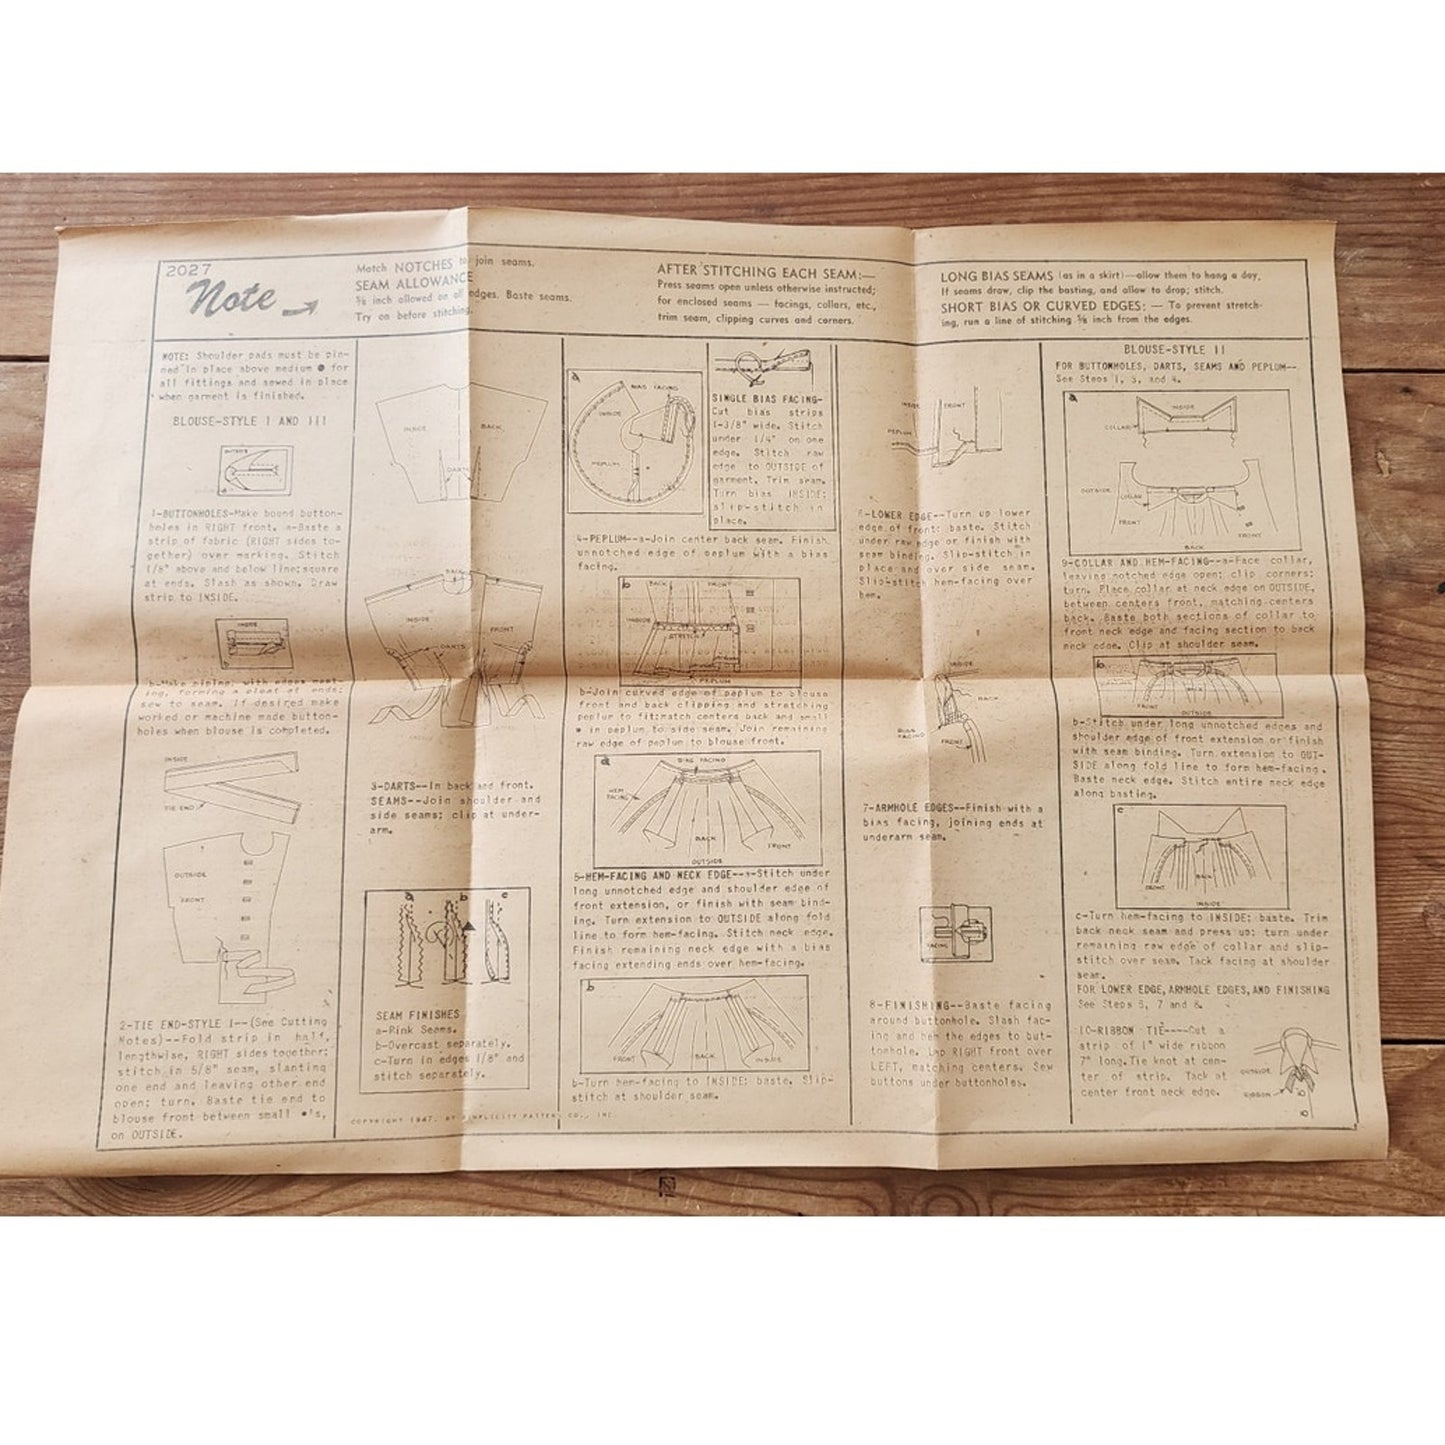 2027
Note
Match NOTCHES to join seams.
SEAM ALLOWANCE
⅝ inch allowed on all edges. Baste seams.
Try on before stitching.
AFTER STITCHING EACH SEAM:—
Press seams open unless otherwise instructed;
for enclosed seams — facings, collars, etc.,
trim seam, clipping curves and corners.
LONG BIAS SEAMS (as in a skirt)—allow them to hang a day,
If seams draw, clip the basting, and allow to drop; stitch.
SHORT BIAS OR CURVED EDGES: — To prevent stretch-
ing, run a line of stitching ⅜ inch from the edges.
NOTE: Shoulder pads must be pin-
ned in place above medium ● for
all fittings and sewed in place
when garment is finished.
BLOUSE-STYLE I AND III
OUTSIDE
a
1-BUTTONHOLES-Make bound button-
holes in RIGHT front. a-Baste a
strip of fabric (RIGHT sides to-
gether) over marking. Stitch
1/8" above and below line;square
at ends. Slash as shown. Draw
strip to INSIDE.
INSIDE
b
b-Make piping, with edges meet-
ing, forming a pleat at ends;
sew to seam. If desired make
worked or machine made button-
holes when blouse is completed.
INSIDE
TIE END
OUTSIDE
FRONT
2-TIE END-STYLE I--(See Cutting
Notes)--Fold strip in half,
lengthwise, RIGHT sides together;
stitch in 5/8" seam, slanting
one end and leaving other end
open; turn. Baste tie end to
blouse front between small •'s,
on OUTSIDE.
INSIDE
BACK
DARTS
BACK
INSIDE
FRONT
DARTS
3-DARTS--In back and front.
SEAMS--Join shoulder and
side seams; clip at under-
arm.
a b c
SEAM FINISHES
a-Pink Seams.
b-Overcast separately.
c-Turn in edges 1/8" and
stitch separately.
COPYRIGHT 1947, BY SIMPLICITY PATTERN CO., INC.
a
BIAS FACING
INSIDE
PEPLUM
SINGLE BIAS FACING-
Cut bias strips
1-3/8" wide. Stitch
under 1/4" on one
edge. Stitch raw
edge to OUTSIDE of
garment. Trim seam.
Turn bias INSIDE;
slip-stitch in
place.
4-PEPLUM--a-Join center back seam. Finish
unnotched edge of peplum with a bias
facing.
b
BACK
FRONT
INSIDE
STRETCH
PEPLUM
b-Join curved edge of peplum to blouse
front and back clipping and stretching
peplum to fit;match centers back and small
• in peplum to side seam. Join remaining
raw edge of peplum to blouse front.
a
BIAS FACING
HEM
FACING
BACK
FRONT
OUTSIDE
5-HEM-FACING AND NECK EDGE--a-Stitch under
long unnotched edge and shoulder edge of
front extension, or finish with seam bind-
ing. Turn extension to OUTSIDE along fold
line to form hem-facing. Stitch neck edge.
Finish remaining neck edge with a bias
facing extending ends over hem-facing.
b
FRONT
BACK
INSIDE
b-Turn hem-facing to INSIDE; baste. Slip-
stitch at shoulder seam.
INSIDE
FRONT
PEPLUM
6-LOWER EDGE--Turn up lower
edge of front; baste. Stitch
under raw edge or finish with
seam binding. Slip-stitch in
place and over side seam.
Slip-stitch hem-facing over
hem.
INSIDE
BACK
BIAS
FACING
FRONT
7-ARMHOLE EDGES--Finish with a
bias facing, joining ends at
underarm seam.
FACING
8-FINISHING--Baste facing
around buttonhole. Slash fac-
ing and hem the edges to but-
tonhole. Lap RIGHT front over
LEFT, matching centers. Sew
buttons under buttonholes.
BLOUSE-STYLE II
FOR BUTTONHOLES, DARTS, SEAMS AND PEPLUM--
See Steps 1, 3, and 4.
a
INSIDE
COLLAR
OUTSIDE
COLLAR
FRONT
BACK
FRONT
9-COLLAR AND HEM-FACING--a-Face collar,
leaving notched edge open; clip corners;
turn. Place collar at neck edge on OUTSIDE,
between centers front, matching centers
back. Baste both sections of collar to
front neck edge and facing section to back
neck edge. Clip at shoulder seam.
b
BACK
FRONT
OUTSIDE
b-Stitch under long unnotched edges and
shoulder edge of front extension or finish
with seam binding. Turn extension to OUT-
SIDE along fold line to form hem-facing.
Baste neck edge. Stitch entire neck edge
along basting.
c
FRONT
BACK
INSIDE
c-Turn hem-facing to INSIDE; baste. Trim
back neck seam and press up; turn under
remaining raw edge of collar and slip-
stitch over seam. Tack facing at shoulder
seam.
FOR LOWER EDGE, ARMHOLE EDGES, AND FINISHING
See Steps 6, 7 and 8.
10-RIBBON TIE----Cut a
strip of 1" wide ribbon
7" long.Tie knot at cen-
ter of strip. Tack at
center front neck edge.
OUTSIDE
RIBBON